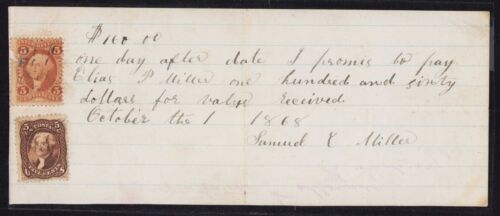 $160 00
one day after date I promis to pay
Elias P Miller one hundred and sixty
dollars for value received
October the 1 1868
Samuel E Miller
5 5
5 5